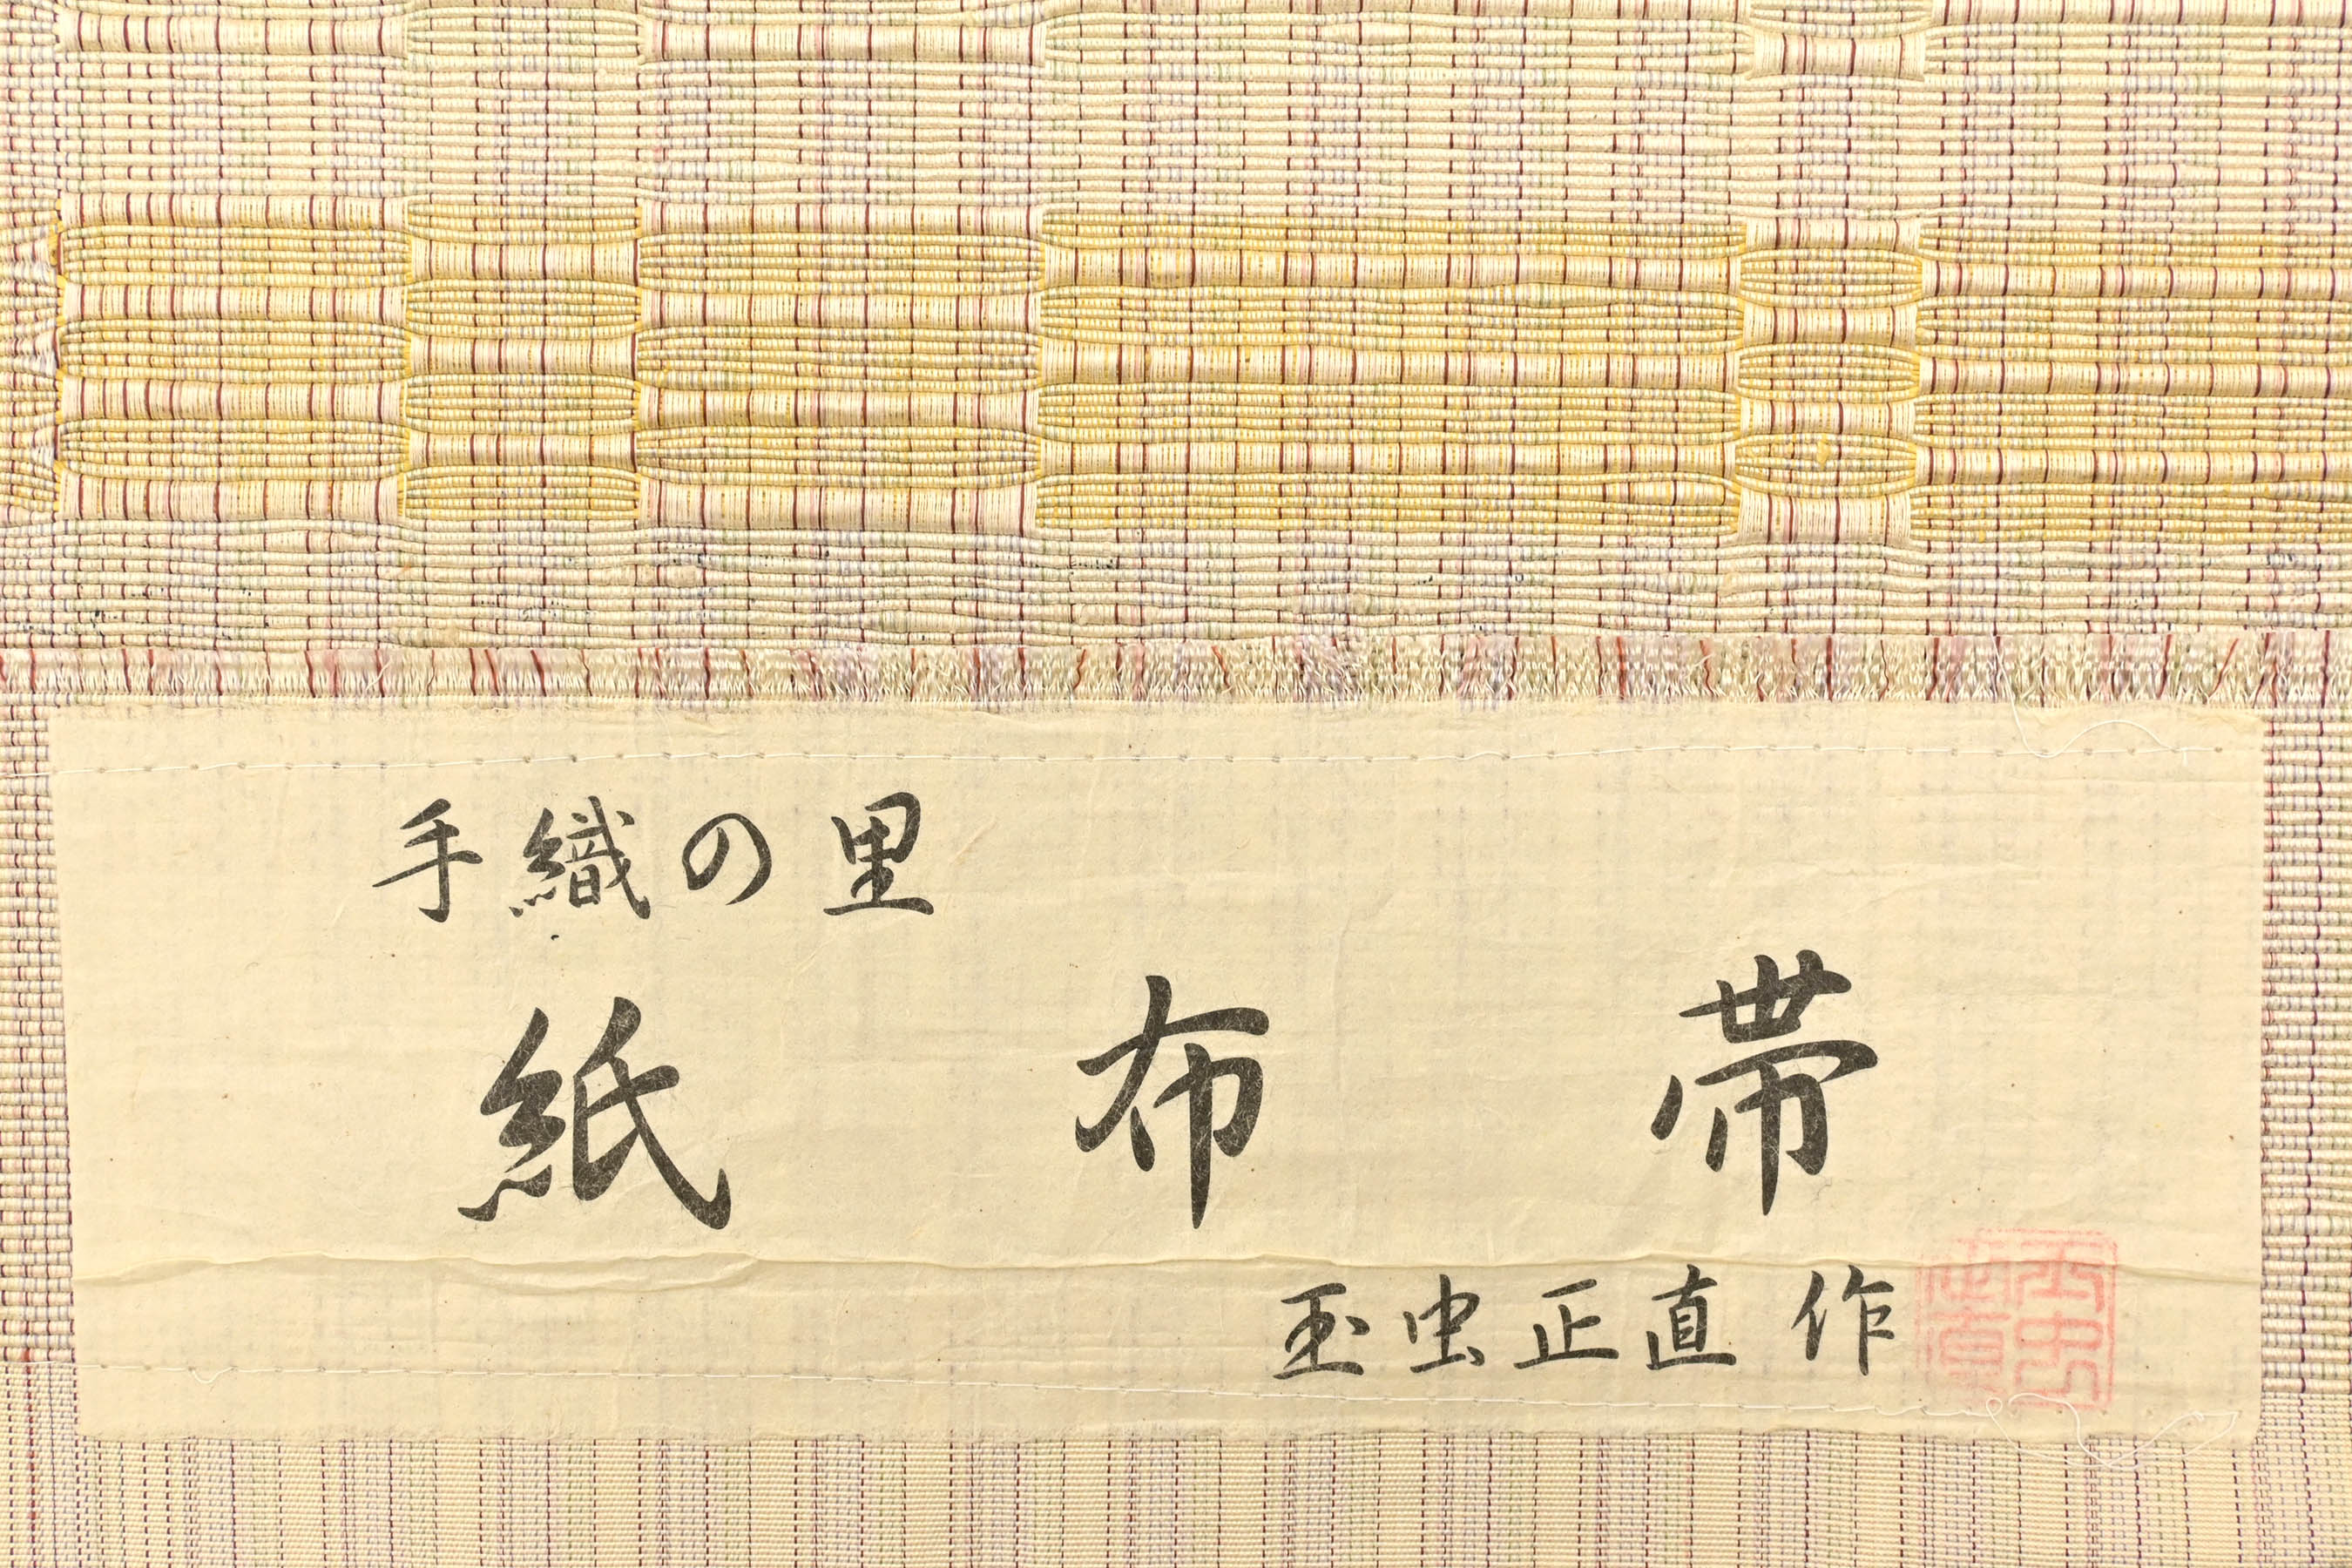 手織の里
紙布帯
玉虫正直 作
玉虫正直